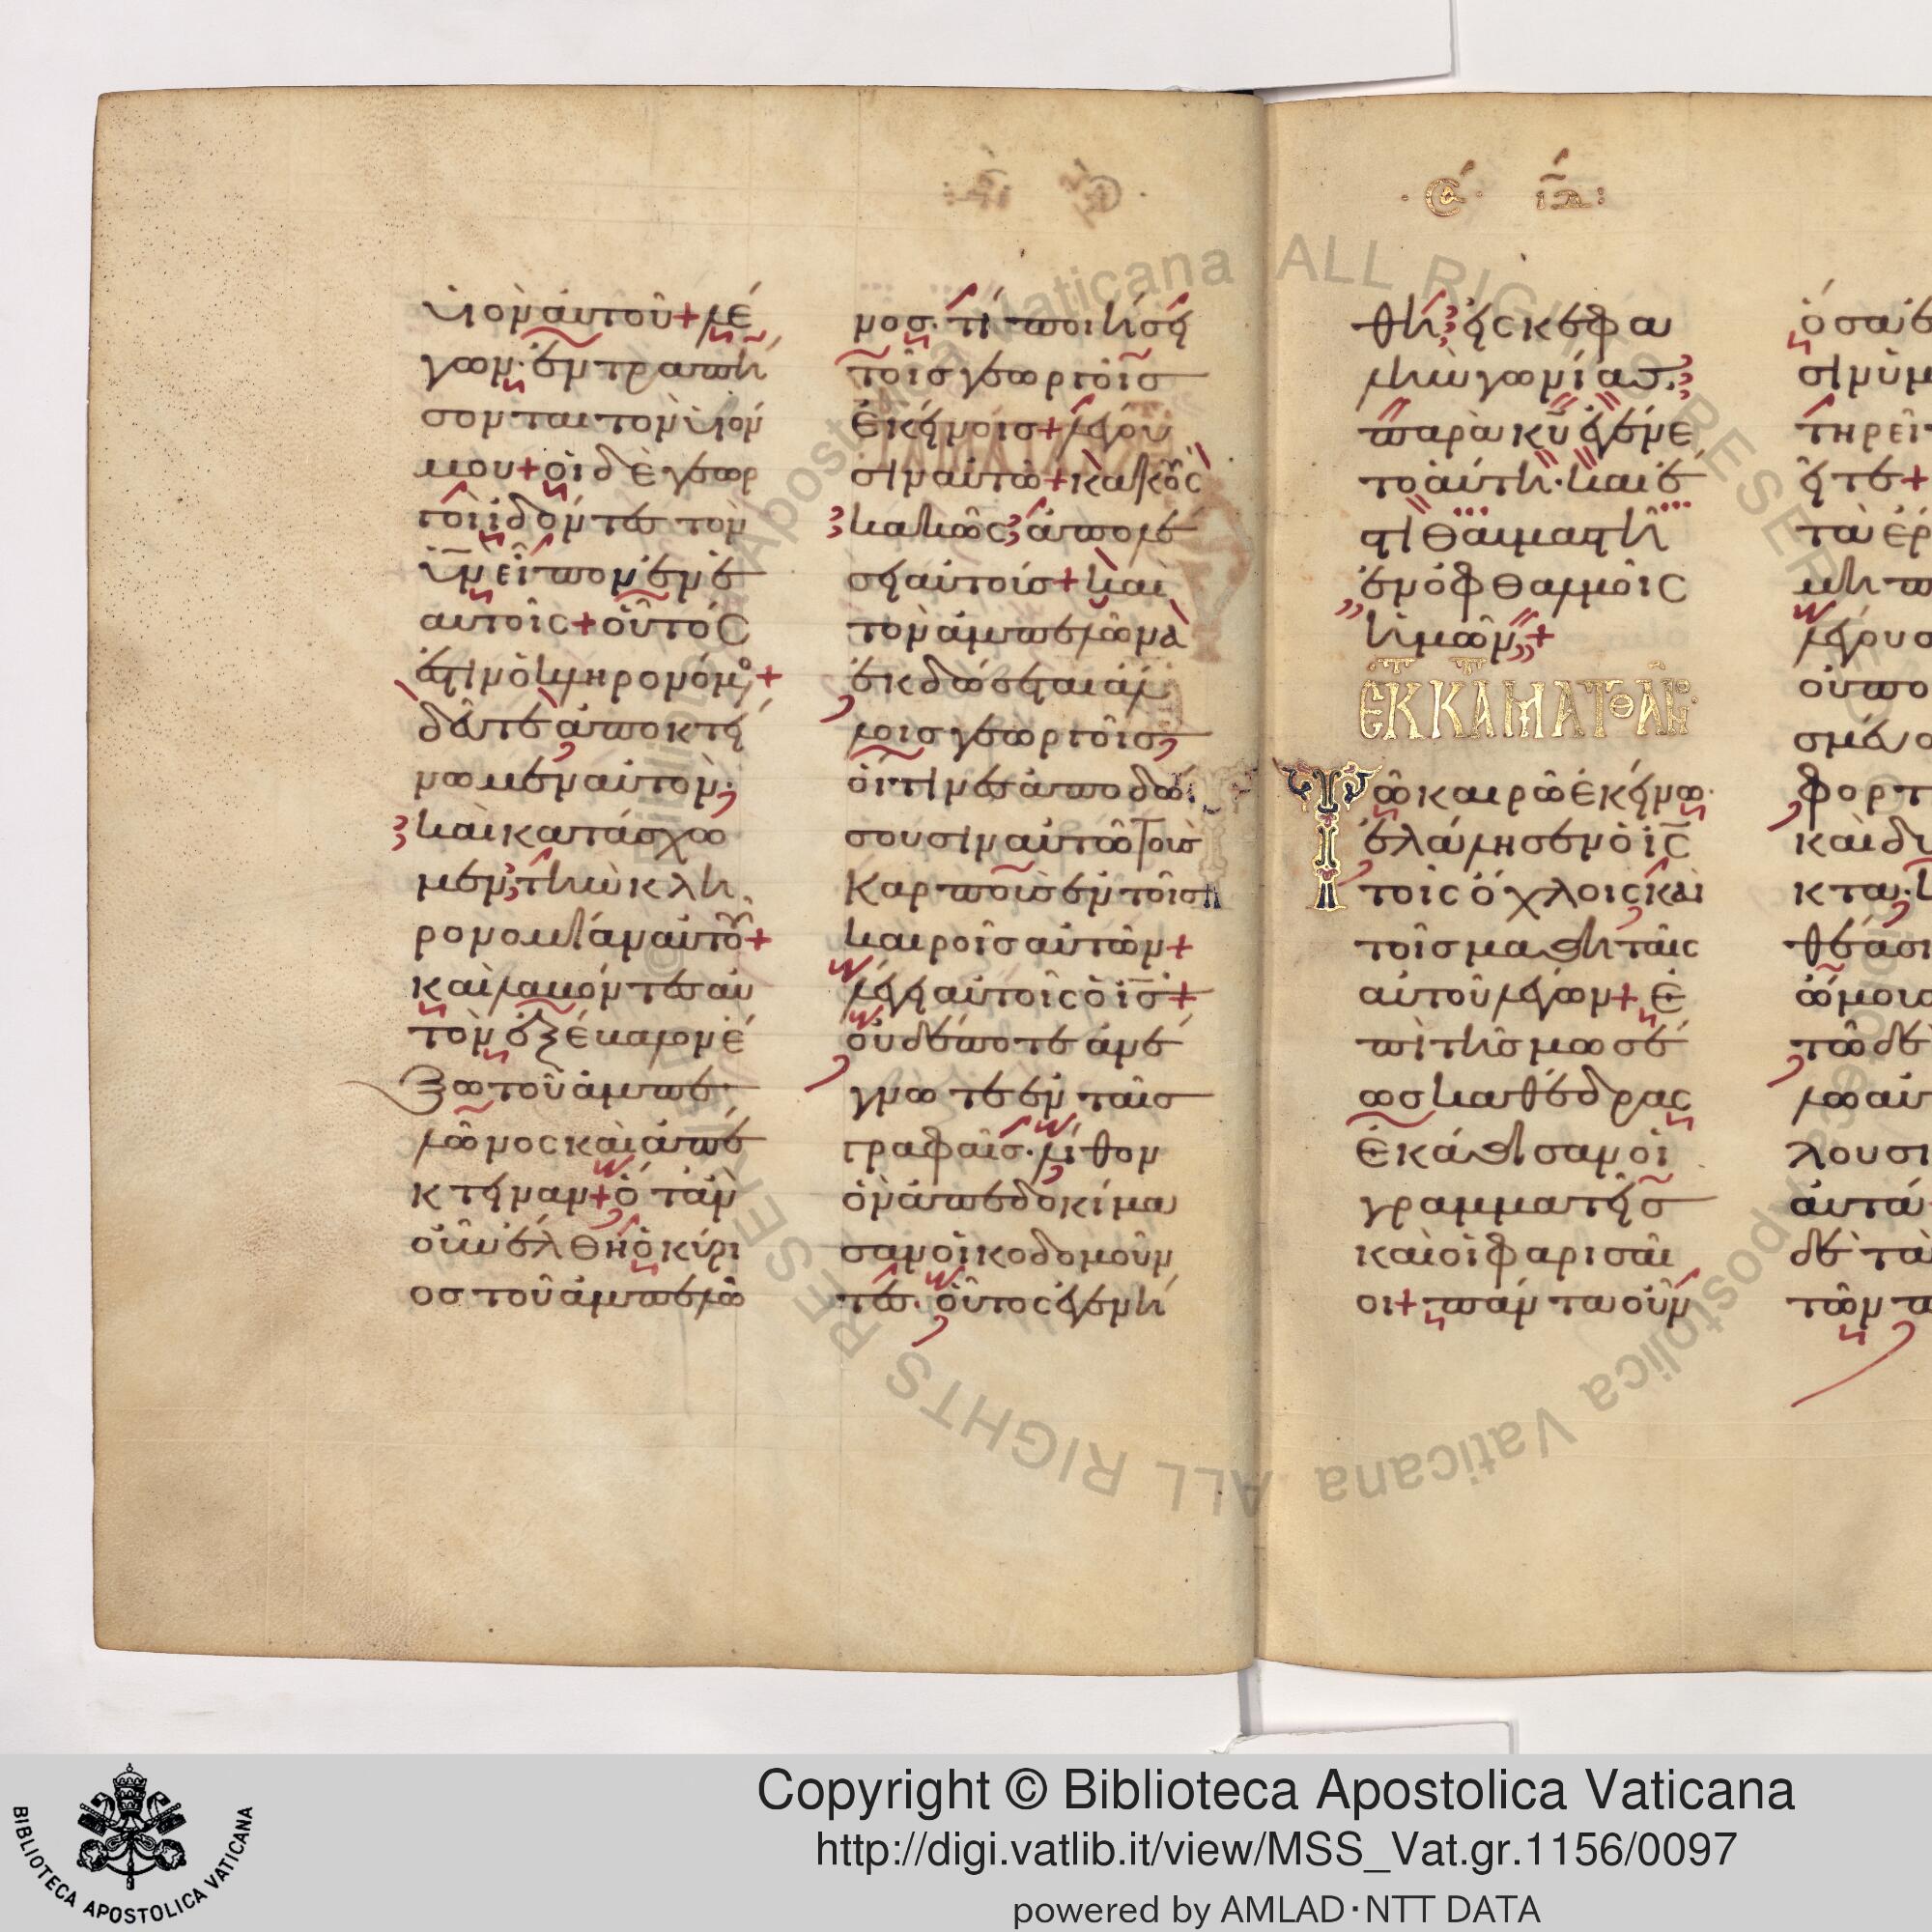 υἱὸν αὐτοῦ + λέ
γων· ἐντραπή
σονται τὸν υἱόν
μου + οἱ δὲ γεωρ
γοὶ ἰδόντες τὸν
υἱν εἶπον ἐν ἑ
αυτοῖς + οὗτός
ἐστιν ὁ κληρονόμο +
δεῦτε ἀποκτεί
νωμεν αὐτὸν·
καὶ κατάσχω
μεν τὴν κλη
ρονομίαν αὐτοῦ +
καὶ λαβόντες αὐ
τὸν ἐξέβαλον ἔ
ξω τοῦ ἀμπε
λῶνος καὶ ἀπέ
κτειναν + ὅταν
οὖν ἔλθῃ ὁ κύρι
ος τοῦ ἀμπελῶ
νος· τί ποιήσει
τοῖς γεωργοῖς
ἐκείνοις + λέγου
σιν αὐτῶ + κακοὺς
κακῶς ἀπολέ
σει αὐτούς + καὶ
τὸν ἀμπελῶνα
ἐκδώσεται ἄλ
λοις γεωργοῖς
οἵτινες ἀποδώ
σουσιν αὐτῶ τοὺς
καρποὺς ἐν τοῖς
καιροῖς αὐτῶν +
λέγει αὐτοῖς ὁ ις +
οὐδέποτε ἀνέ
γνωτε ἐν ταῖς
γραφαῖς· λίθον
ὃν ἀπεδοκίμα
σαν οἱ κοδομοῦν
τες· οὗτος ἐγενή
·Σα· ια:
θη εἰς κεφα
λὴν γωνίας·
παρὰ κυ ἐγένε
το αὕτη· καὶ ἔ
στι θαυμαστὴ
ἐν ὀφθαλμοῖς
ἡμῶν +
ΕΚ Κ ΑΜΑΤΘΑΙΟ
Τῶ καιρῶ ἐκείνω·
ἐλάλησεν ὁ ις
τοῖς ὄχλοις καὶ
τοῖς μαθηταῖς
αὐτοῦ λέγων + ἐ
πὶ τῆς μωσέ
ως καθέδρας
ἐκάθισαν οἱ
γραμματεῖς
καὶ οἱ φαρισαῖ
οι + πάντα οὖν
ὅσα ἐ
σιν ὑμ
τηρεῖ
εῖτε +
τὰ ἔρ
μὴ π
λέγουσ
οὐ πο
σμεύο
φορτ
καὶ δυ
κτα· κ
θέασι
ὤμου
τῶ δὲ
λω αὐ
λουσι
αὐτά
δὲ τὰ
τῶν π
Copyright © Biblioteca Apostolica Vaticana
http://digi.vatlib.it/view/MSS_Vat.gr.1156/0097
powered by AMLAD·NTT DATA
BIBLIOTECA APOSTOLICA VATICANA